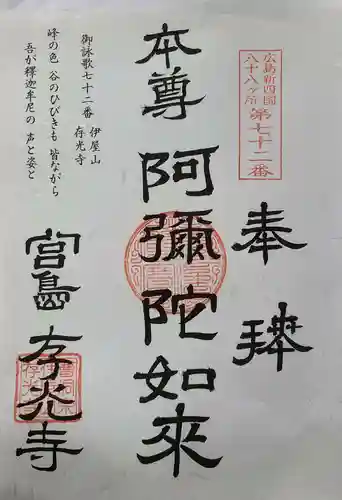 広島新四国
八十八ヶ所
第七十二番
奉拝
本尊
阿彌陀如来
御詠歌七十二番 伊屋山
存光寺
峰の色 谷のひびきも 皆ながら
吾が釋迦牟尼の 声と姿と
宮島
存光寺